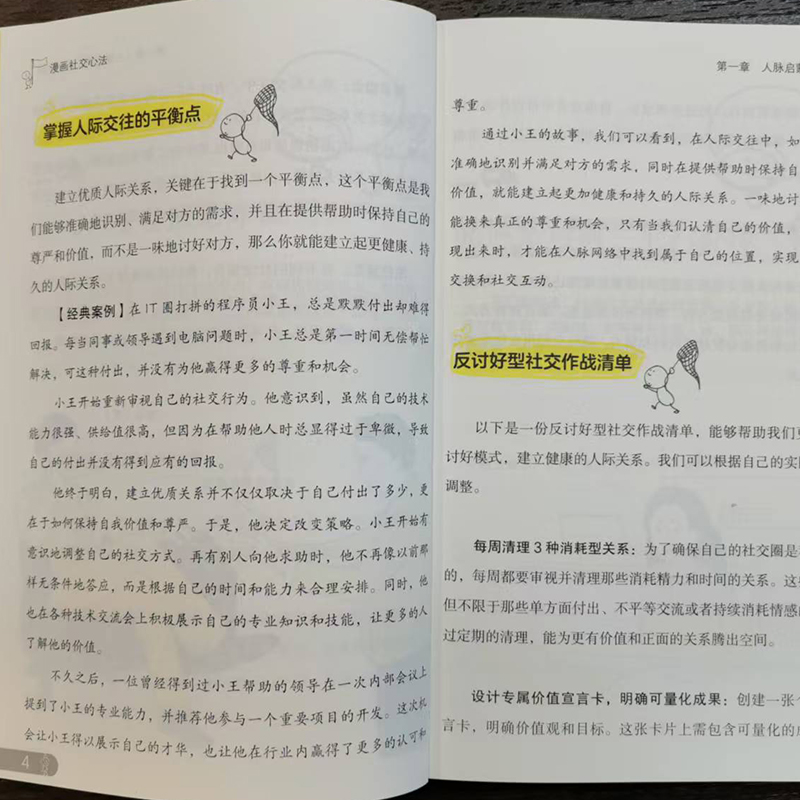 漫画社交心法
掌握人际交往的平衡点
建立优质人际关系，关键在于找到一个平衡点，这个平衡点是我
们能够准确地识别、满足对方的需求，并且在提供帮助时保持自己的
尊严和价值，而不是一味地讨好对方，那么你就能建立起更健康、持
久的人际关系。
【经典案例】在IT圈打拼的程序员小王，总是默默付出却难得
回报。每当同事或领导遇到电脑问题时，小王总是第一时间无偿帮忙
解决，可这种付出，并没有为他赢得更多的尊重和机会。
小王开始重新审视自己的社交行为。他意识到，虽然自己的技术
能力很强、供给值很高，但因为在帮助他人时总显得过于卑微，导致
自己的付出并没有得到应有的回报。
他终于明白，建立优质关系并不仅仅取决于自己付出了多少，更
在于如何保持自我价值和尊严。于是，他决定改变策略。小王开始有
意识地调整自己的社交方式。再有别人向他求助时，他不再像以前那
样无条件地答应，而是根据自己的时间和能力来合理安排。同时，他
也在各种技术交流会上积极展示自己的专业知识和技能，让更多的人
了解他的价值。
不久之后，一位曾经得到过小王帮助的领导在一次内部会议上
提到了小王的专业能力，并推荐他参与一个重要项目的开发。这次机
会让小王得以展示自己的才华，也让他在行业内赢得了更多的认可和
4
第一章 人脉启
尊重。
通过小王的故事，我们可以看到，在人际交往中，如
准确地识别并满足对方的需求，同时在提供帮助时保持自
价值，就能建立起更加健康和持久的人际关系。一味地讨
能换来真正的尊重和机会，只有当我们认清自己的价值，
现出来时，才能在人脉网络中找到属于自己的位置，实现
交换和社交互动。
反讨好型社交作战清单
以下是一份反讨好型社交作战清单，能够帮助我们更
讨好模式，建立健康的人际关系。我们可以根据自己的实
调整。
每周清理3种消耗型关系：为了确保自己的社交圈是
的，每周都要审视并清理那些消耗精力和时间的关系。这
但不限于那些单方面付出、不平等交流或者持续消耗情感
过定期的清理，能为更有价值和正面的关系腾出空间。
设计专属价值宣言卡，明确可量化成果：创建一张
言卡，明确价值观和目标。这张卡片上需包含可量化的